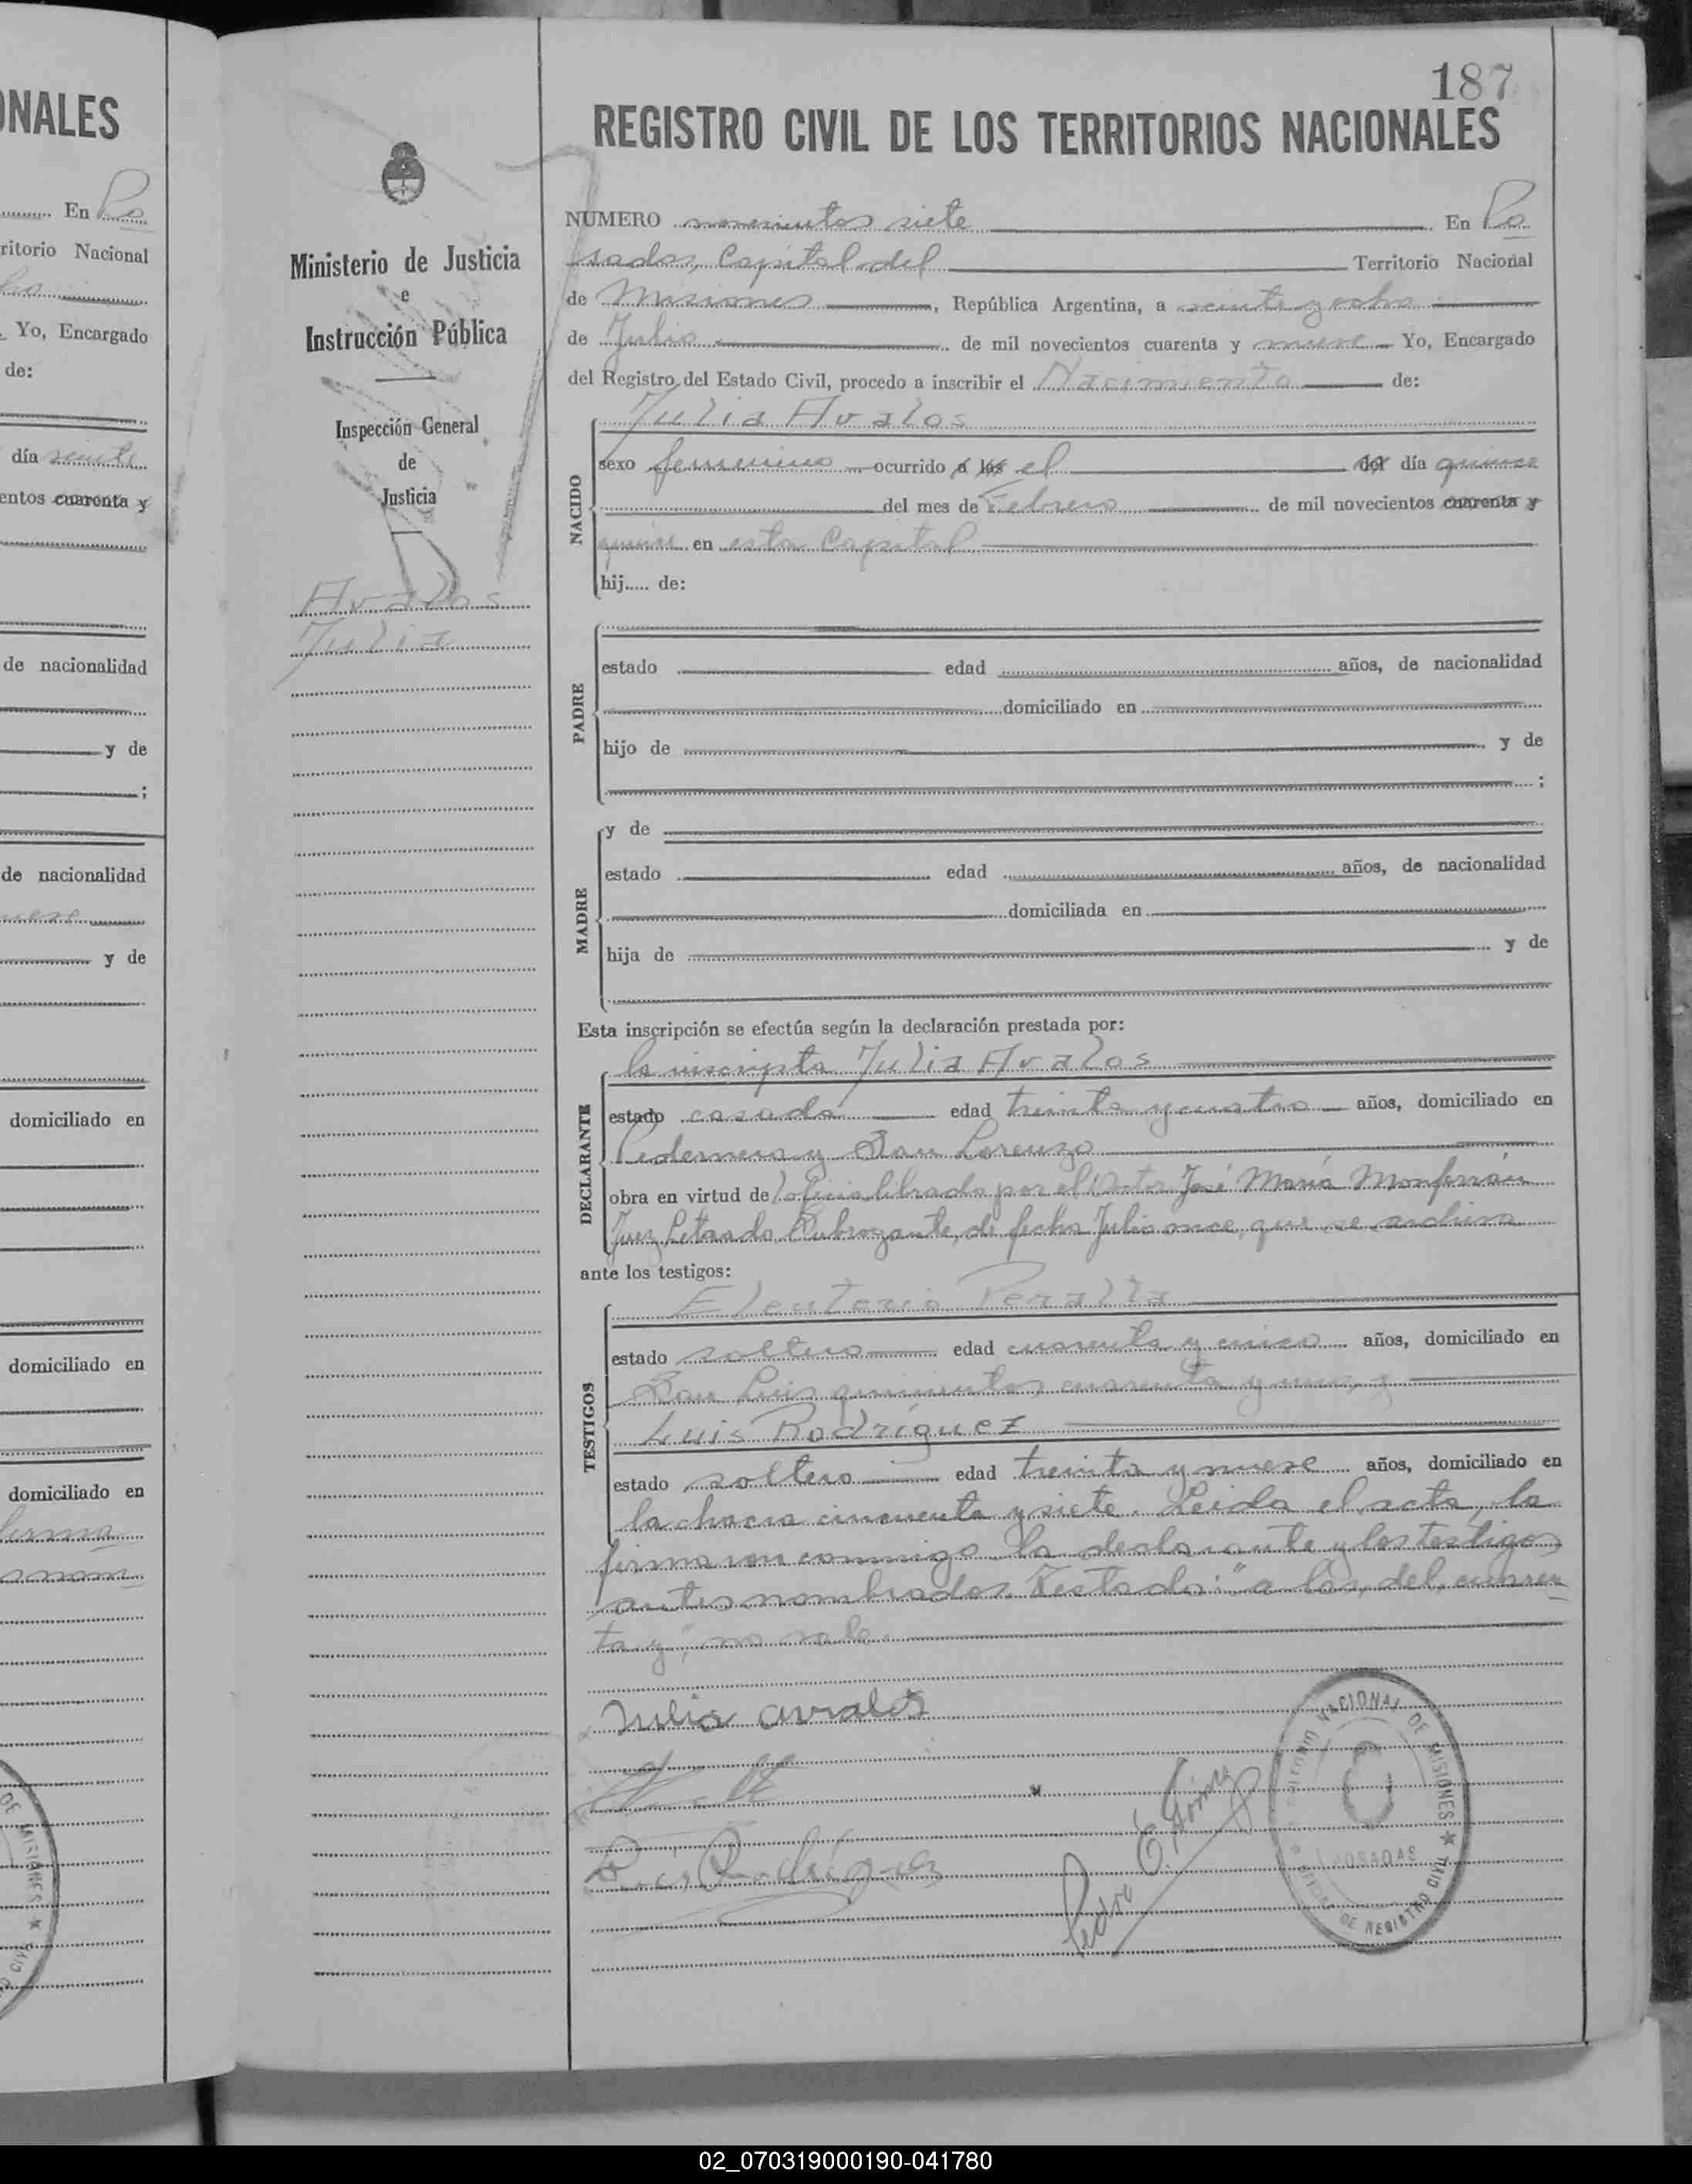 ONALES
En Po
ritorio Nacional
Yo, Encargado
de:
día veinte
entos cuarenta y
de nacionalidad
y de
;
de nacionalidad
y de
domiciliado en
domiciliado en
domiciliado en
Ministerio de Justicia
e
Instrucción Pública
Inspección General
de
Justicia
Avalos
Julia
187
REGISTRO CIVIL DE LOS TERRITORIOS NACIONALES
NUMERO novecientos siete En Po
sadas, Capital del Territorio Nacional
de Misiones, República Argentina, a veinte y ocho
de Julio de mil novecientos cuarenta y nueve Yo, Encargado
del Registro del Estado Civil, procedo a inscribir el Nacimiento de:
Julia Avalos
NACIDO
sexo femenino ocurrido a las el del día quince
del mes de Febrero de mil novecientos cuarenta y
quince en esta Capital
hij..... de:
PADRE
estado edad años, de nacionalidad
domiciliado en
hijo de y de
;
MADRE
y de
estado edad años, de nacionalidad
domiciliada en
hija de y de
Esta inscripción se efectúa según la declaración prestada por:
DECLARANTE
la inscripta Julia Avalos
estado casada edad treinta y cuatro años, domiciliado en
Pedernera y San Lorenzo
obra en virtud de oficio librado por el Doctor José María Monferrán
Juez Letrado Subrogante, de fecha Julio once, que se archiva
ante los testigos:
TESTIGOS
Eleuterio Peralta
estado soltero edad cuarenta y cinco años, domiciliado en
San Luis quinientos cuarenta y uno, y
Luis Rodríguez
estado soltero edad treinta y nueve años, domiciliado en
la chacra cincuenta y siete. Leida el acta, la
firmaron conmigo la declarante y los testigos
antes nombrados. Testado: "a las, del, cuaren
ta y", no vale.
Julia avalos
Luis Rodríguez
Pedro E.
NACIONAL DE MISIONES ★
POSADAS
DE REGISTRO CIVIL
DE MISIONES ★
02_070319000190-041780